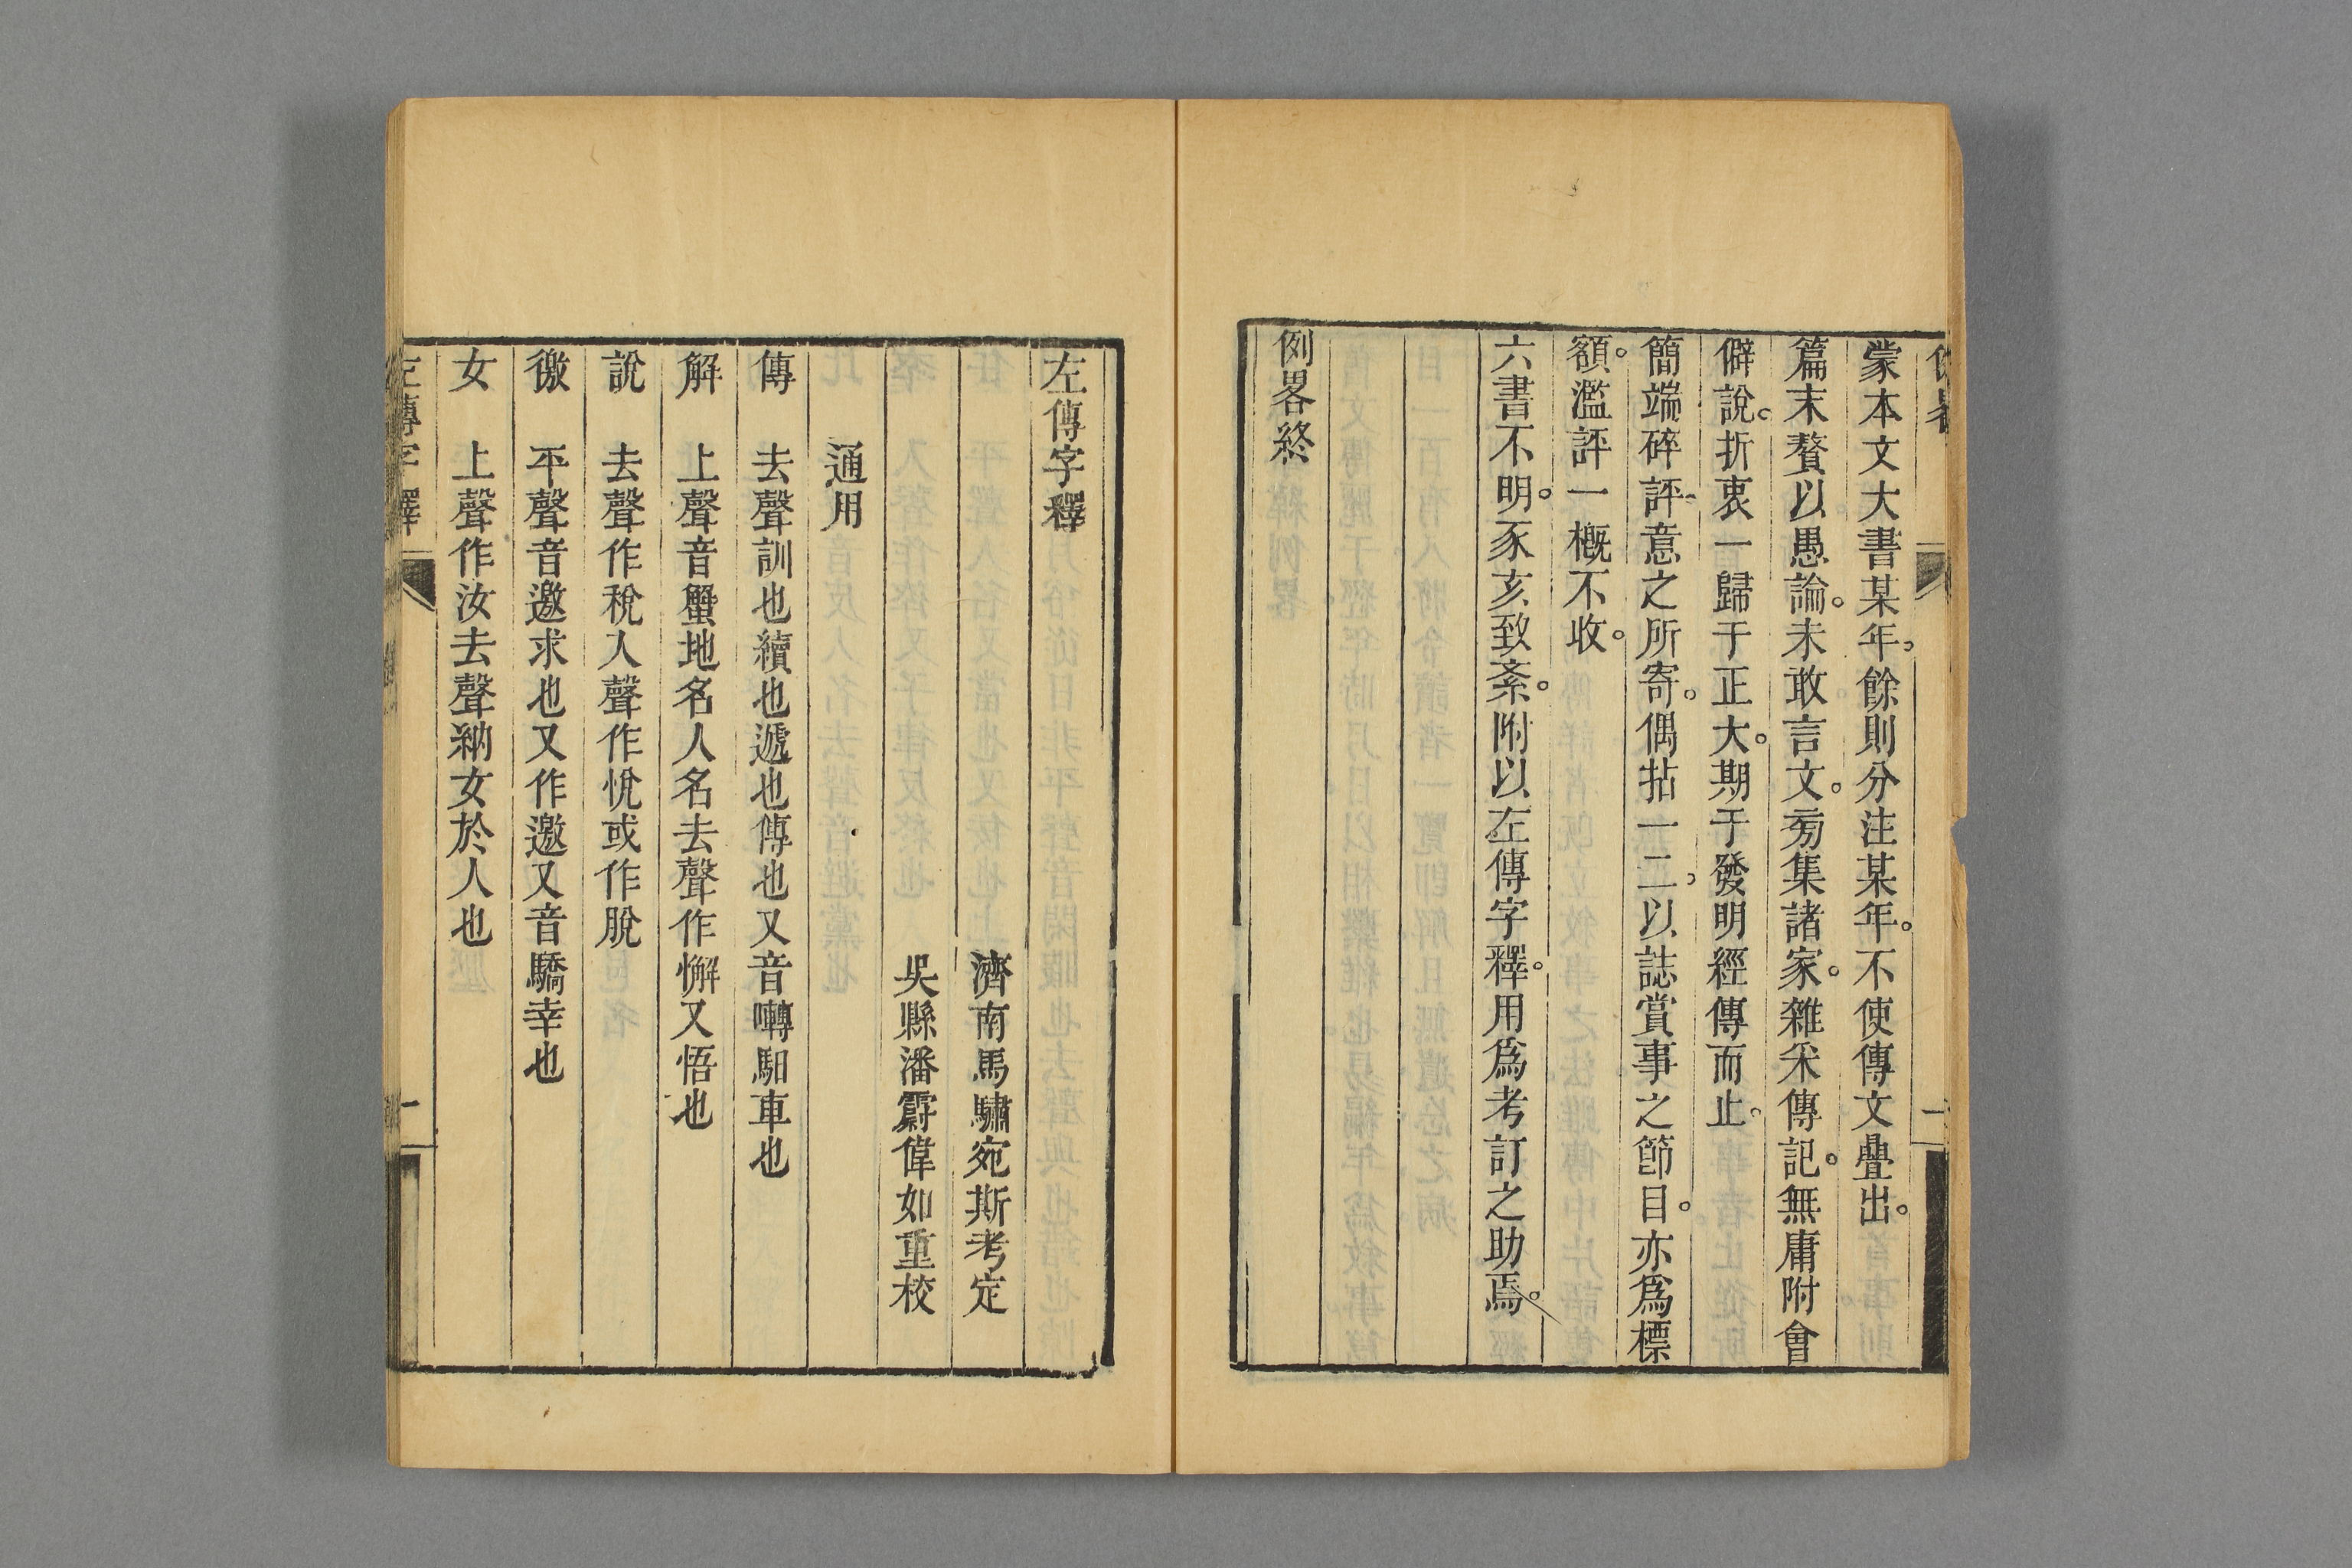 蒙本文大書某年。餘則分注某年。不使傳文疊出。
篇末贅以愚論。未敢言文。芴集諸家。雜采傳記。無庸附會
僻說。折衷一歸于正大。期于發明經傳而止。
簡端碎評。意之所寄。偶拈一二。以誌賞事之節目。亦為標
額。濫評一概不收。
六書不明。豕亥致紊。附以左傳字釋。用為考訂之助焉。
例畧終
左傳字釋
濟南馬驌宛斯考定
吳縣潘霨偉如重校
通用
傳 去聲訓也續也遞也傳也又音囀馹車也
解 上聲音蟹地名人名去聲作懈又悟也
說 去聲作稅入聲作悅或作脫
徼 平聲音邀求也又作邀又音驕幸也
女 上聲作汝去聲納女於人也
左傳字釋
一